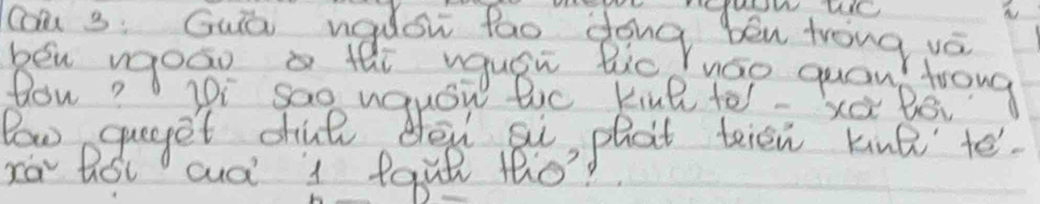 Câu 3: Giữa nguồn lao động bên trong và
bên ngoài thì nguồn lực nào quan trọng
hơn? Vì sao nguồn lực kinh tế - xã hội
lại quyết định đến sự phát triển kinh tế -
xã hội của 1 lãnh thổ?